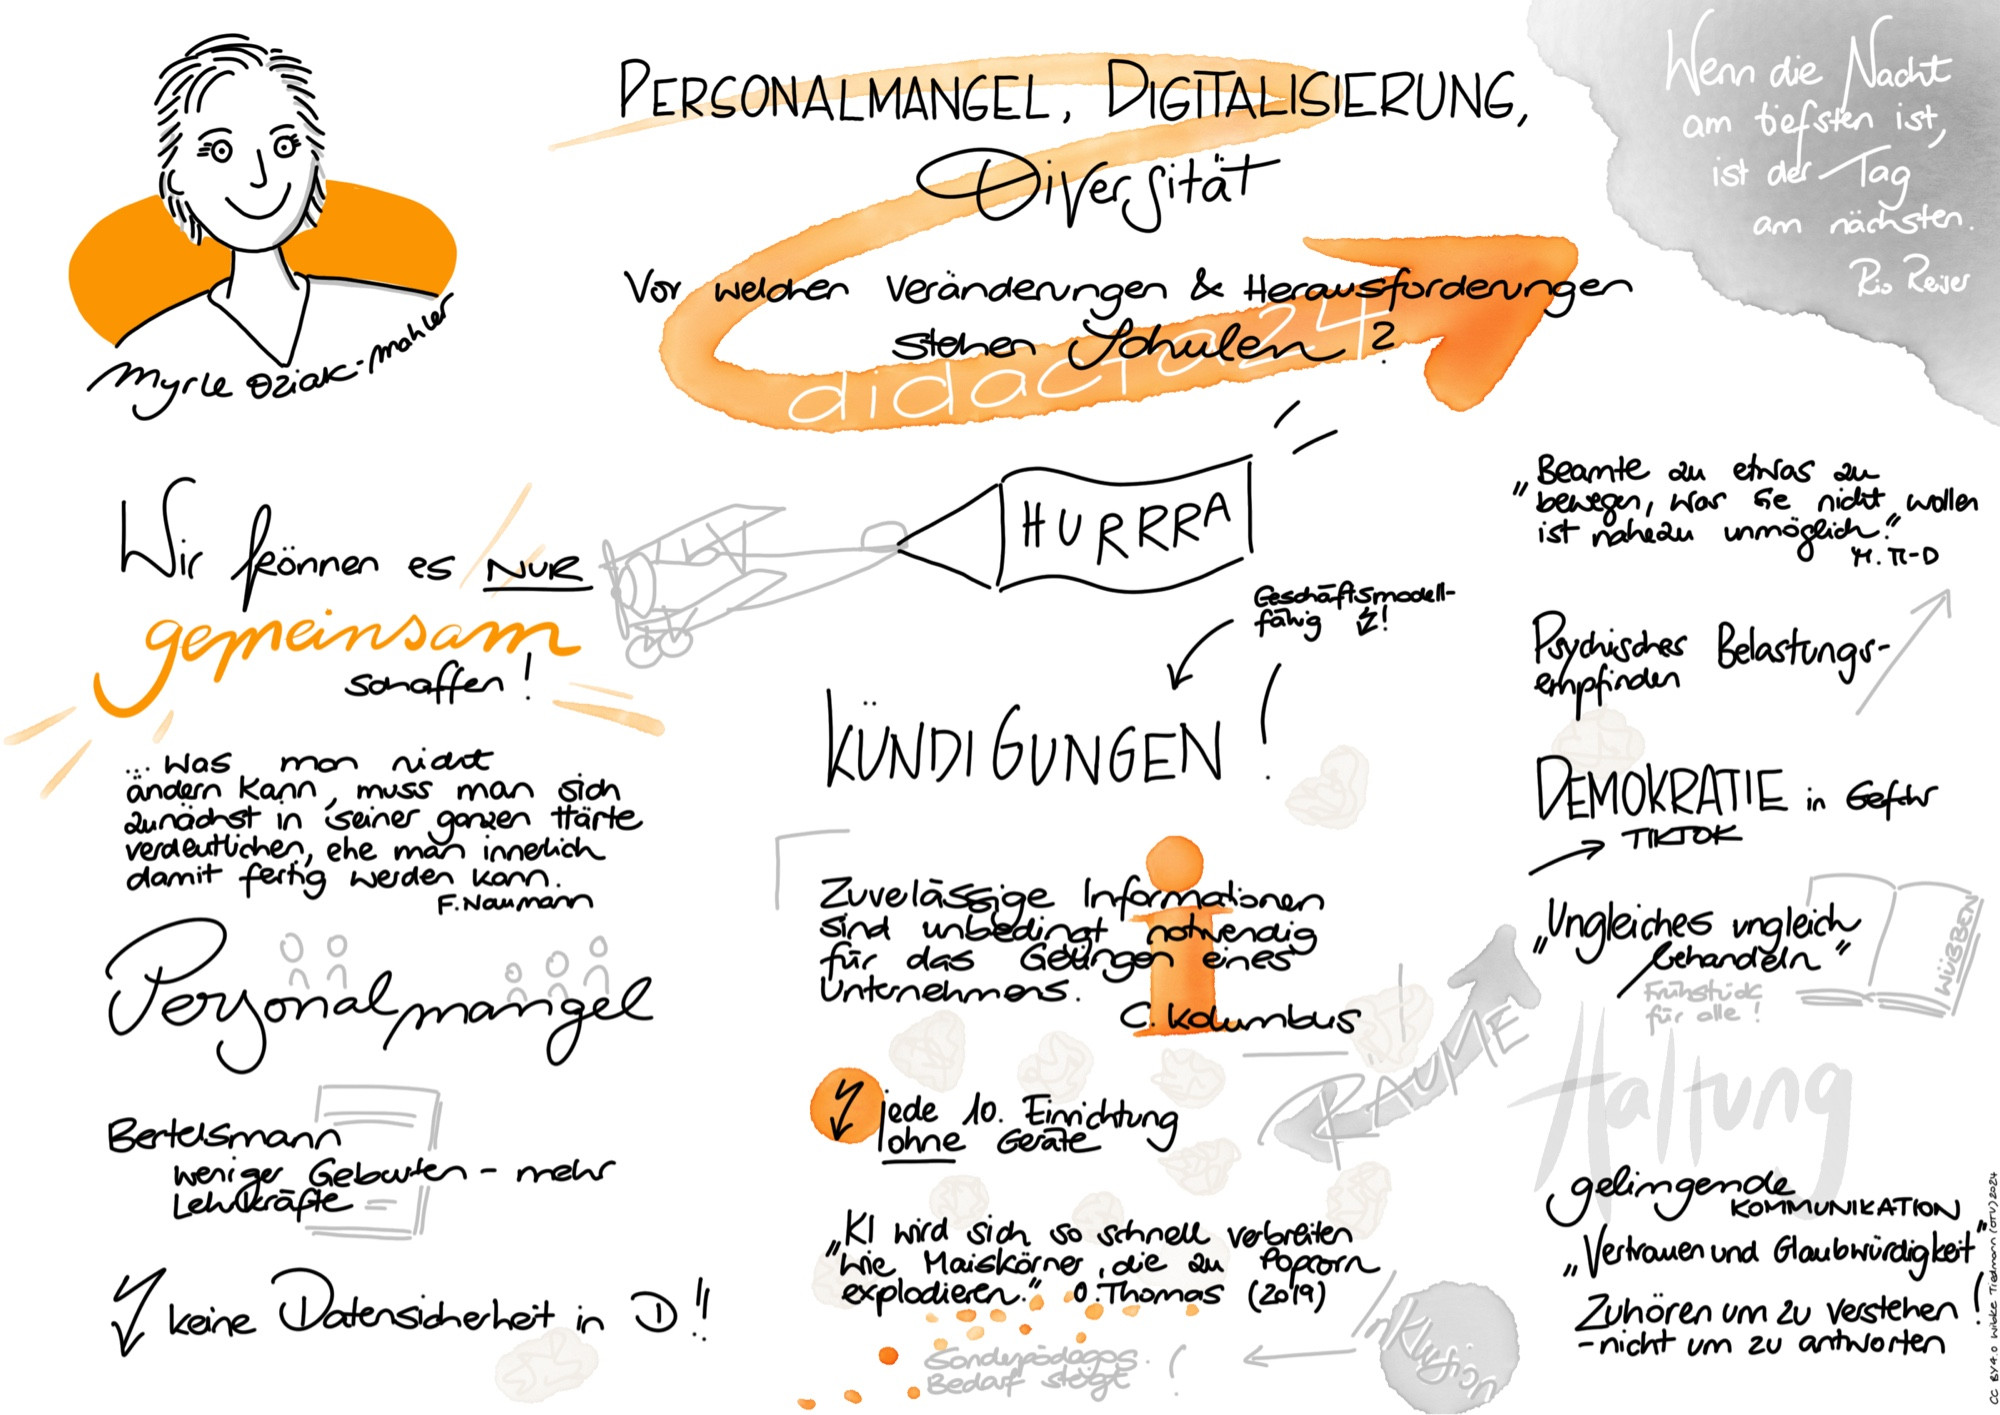 PERSONALMANGEL, DIGITALISIERUNG,
Diversität
Vor welchen Veränderungen & Herausforderungen
stehen Schulen?
didacta24
Wenn die Nacht
am tiefsten ist,
ist der Tag
am nächsten.
Rio Reiser
Myrle Dziak-Mahler
Wir können es NUR
gemeinsam
schaffen!
HURRRA
... Was man nicht
ändern kann, muss man sich
zunächst in seiner ganzen Härte
verdeutlichen, ehe man innerlich
damit fertig werden kann.
F. Naumann
Personalmangel
Bertelsmann
weniger Geburten - mehr
Lehrkräfte
keine Datensicherheit in D!!
Geschäftsmodell-
fähig !
KÜNDIGUNGEN!
Zuvelässige Informationen
sind unbedingt notwendig
für das Gelingen eines
Unternehmens.
C. Kolumbus
jede 10. Einrichtung
ohne Geräte
„KI wird sich so schnell verbreiten
wie Maiskörner, die zu Popcorn
explodieren." O. Thomas (2019)
Sonderpädagog.
Bedarf steigt !
Inklusion
RÄUME
„Beamte zu etwas zu
bewegen, was sie nicht wollen
ist nahezu unmöglich."
Psychisches Belastungs-
empfinden
DEMOKRATIE in Gefahr
TIKTOK
„Ungleiches ungleich
behandeln"
Frühstück
für alle!
WÜBBEN
Haltung
gelingende
KOMMUNIKATION
„Vertrauen und Glaubwürdigkeit"
Zuhören um zu verstehen!
- nicht um zu antworten
CC BY 4.0 Wibke Tiedmann (OTU) 2024